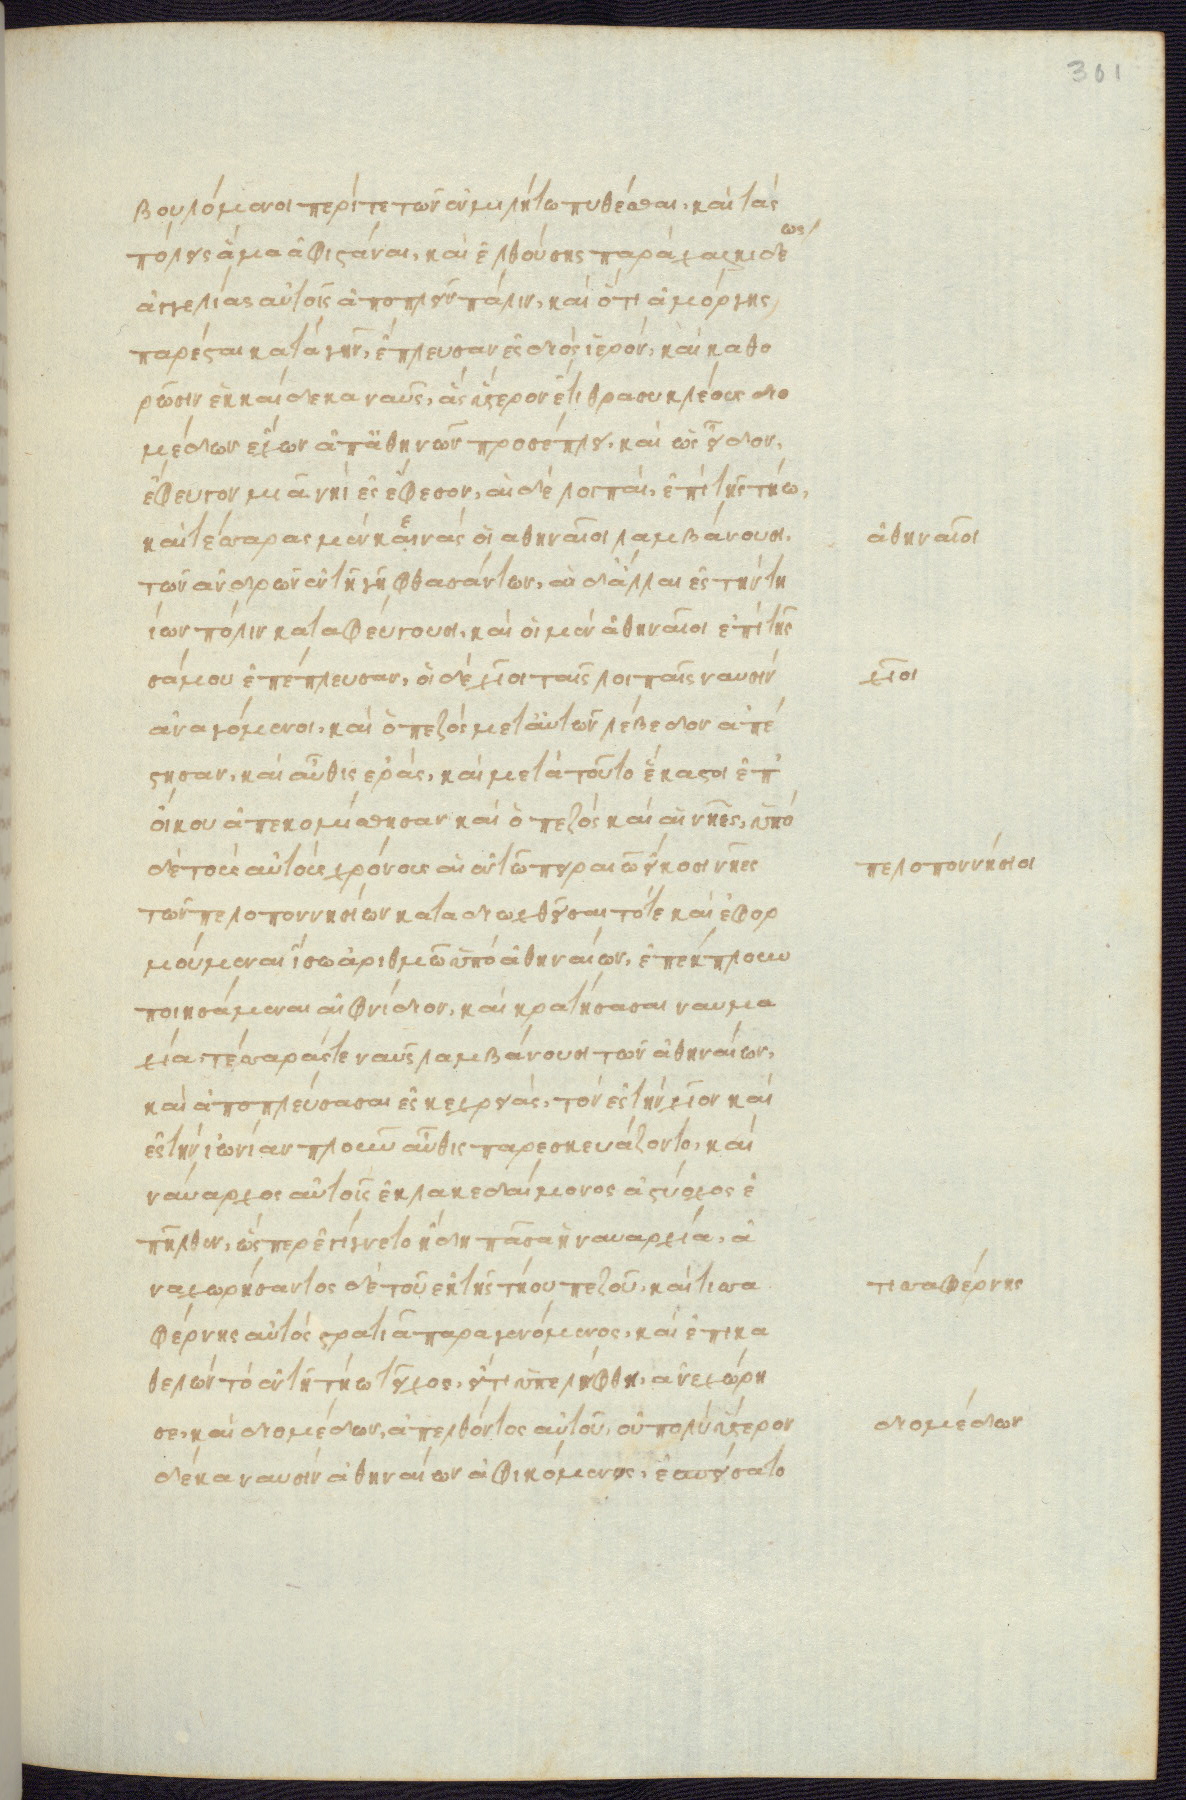 βουλόμενοι περί τε τῶν ἐν μιλήτω πυθέσθαι, καὶ τὰς
πόλεις ἅμα ἀφιστάναι, καὶ ἐλθούσης παρὰ χαλκιδέως
ἀγγελίας αὐτοῖς ἀποπλεῖν πάλιν, καὶ ὅτι ἀμόργης
παρέσται κατὰ γῆν, ἔπλευσαν ἐς διὸς ἱερόν, καὶ καθο
ρῶσιν ἑκκαίδεκα ναῦς, ἃς ὕστερον ἔτι θρασυκλέους διο
μέδων ἔχων ἀπ' ἀθηνῶν προσέπλει, καὶ ὡς εἶδον,
ἔφευγον μιᾶ νηὶ ἐς ἔφεσον, αἱ δὲ λοιπαὶ, ἐπὶ τῆς τήω,
καὶ τέσσαρας μὲν κενὰς οἱ αθηναῖοι λαμβάνουσι,
τῶν ἀνδρῶν ἐν τῆ γῆ φθασάντων, αἱ δ' ἄλλαι ἐς τὴν τη
ίων πόλιν καταφεύγουσι, καὶ οἱ μὲν ἀθηναῖοι ἐπὶ τῆς
σάμου ἐπέπλευσαν, οἱ δὲ χῖοι ταῖς λοιπαῖς ναυσὶν
ἀναγόμενοι, καὶ ὁ πεζὸς μετ' αὐτῶν λέβεδον ἀπέ
στησαν, καὶ αὖθις ἐρὰς, καὶ μετὰ τοῦτο ἕκαστοι ἐπ'
οἴκου ἀπεκομίσθησαν καὶ ὁ πεζὸς καὶ αἱ νῆες, ὑπὸ
δὲ τοὺς αὐτοὺς χρόνους αἱ ἐν τῶ πειραιῶ εἴκοσι νῆες
τῶν πελοποννησίων καταδιωχθεῖσαι τότε καὶ ἐφορ
μούμεναι ἴσω ἀριθμῶ ὑπὸ ἀθηναίων, ἐπέκπλουν
ποιησάμεναι αἰφνίδιον, καὶ κρατήσασαι ναυμα
χία, τέσσαράς τε ναῦς λαμβάνουσι τῶν ἀθηναίων,
καὶ ἀποπλεύσασαι ἐς κεχρειὰς, τὸν ἐς τὴν χῖον καὶ
ἐς τὴν ἰωνίαν πλοῦν αὖθις παρεσκευάζοντο, καὶ
ναύαρχος αὐτοῖς ἐκ λακεδαίμονος ἀστύοχος ἐ
πῆλθεν, ᾧπερ ἐγίγνετο ἤδη πᾶσα ἡ ναυαρχία, ἀ
ναχωρήσαντος δὲ τοῦ ἐκ τῆς τήου πεζοῦ, καὶ τισσα
φέρνης αὐτὸς στρατιᾶ παραγενόμενος, καὶ ἐπικα
θελὼν τὸ ἐν τῆ τήω τεῖχος, εἴ τι ὑπελήφθη, ἀνεχώρη
σε, καὶ διομέδων, ἀπελθόντος αὐτοῦ, οὐ πολὺ ὕστερον
δέκα ναυσὶν ἀθηναίων ἀφικόμενος, ἐσπείσατο
ἀθηναῖοι
χῖοι
πελοποννήσιοι
τισσαφέρνης
διομέδων
301